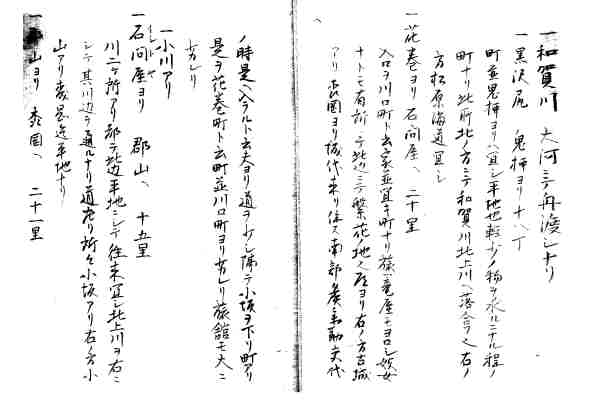 一和賀川 大河ニテ舟渡シナリ
一黒沢尻 鬼柳ヨリ十八丁
町並鬼柳ヨリハ宜シ平地也軽少ノ物ヲ求ルニナル程ノ
町ナリ此所北ノ方ニテ和賀川北上川ヘ落合フ之右ノ
方松原海道宜シ
一花巻ヨリ 石間屋ヘ 二十里
入口ヲ川口町ト云家並宜キ町ナリ旅篭屋モヨロシ妓女
ナトモ有 此辺ニテ繁花ノ地之 ヨリ右ノ方古城
アリ 岡ヨリ城代来リ住ス南部 交代
ノ時是ヘ入ラルト云夫ヨリ道ヲ少シ隔テ小坂ヲ下リ町アリ
是ヲ花巻町ト云町並川口町ヨリ劣レリ旅舘モ大ニ
劣レリ
一小川アリ
一石間屋ヨリ 郡山ヘ 十五里
川二ケ所アリ都テ此辺平地ニシテ往来宜シ北上川ヲ右ニ
シテ其川辺ヲ通ルナリ道 リ所々小坂アリ右ノ方小
山アリ 迄平地ナリ
一 山ヨリ 岡ヘ 二十一里